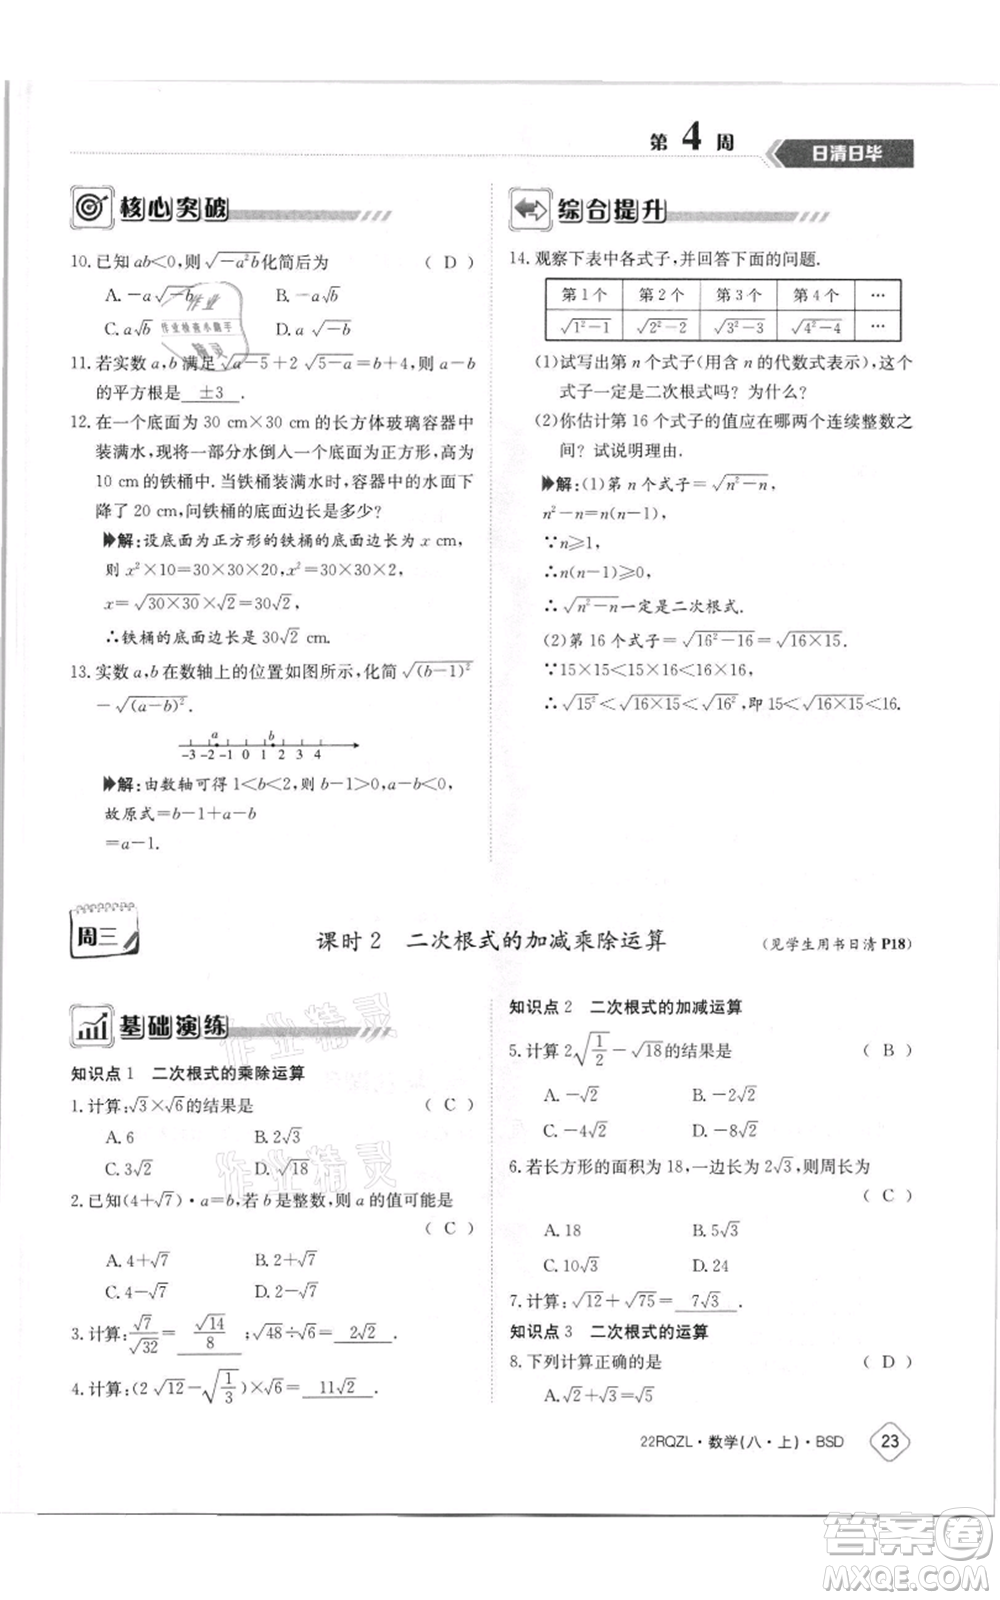 第 4 周
日清日毕
核心突破
10. 已知 ab<0,则√(-a²b)化简后为 ( D )
A. -a√(-b) B. -√b
C. a√b D. a √(-b)
11. 若实数 a,b 满足 √(a-5)+2 √(5-a)=b+4,则 a-b
的平方根是 ±3 .
12. 在一个底面为 30 cm×30 cm 的长方体玻璃容器中
装满水,现将一部分水倒入一个底面为正方形,高为
10 cm 的铁桶中.当铁桶装满水时,容器中的水面下
降了 20 cm,问铁桶的底面边长是多少?
解:设底面为正方形的铁桶的底面边长为 x cm,
则 x²×10=30×30×20,x²=30×30×2,
x=√(30×30)×√2=30√2,
∴铁桶的底面边长是 30√2 cm.
13. 实数 a,b 在数轴上的位置如图所示,化简 √(b-1)²
-√(a-b)².
a b
-3 -2 -1 0 1 2 3 4
解:由数轴可得 1<b<2,则 b-1>0,a-b<0,
故原式=b-1+a-b
=a-1.
综合提升
14. 观察下表中各式子,并回答下面的问题.
第 1 个 第 2 个 第 3 个 第 4 个 …
√(1²-1) √(2²-2) √(3²-3) √(4²-4) …
(1)试写出第 n 个式子(用含 n 的代数式表示),这个
式子一定是二次根式吗? 为什么?
(2)你估计第 16 个式子的值应在哪两个连续整数之
间? 试说明理由.
解:(1)第 n 个式子=√(n²-n),
n²-n=n(n-1),
∵n≥1,
∴n(n-1)≥0,
∴√(n²-n)一定是二次根式.
(2)第 16 个式子=√(16²-16)=√(16×15).
∵15×15<16×15<16×16,
∴√15²<√(16×15)<√16²,即 15<√(16×15)<16.
周三
课时 2 二次根式的加减乘除运算 (见学生用书日清 P18)
基础演练
知识点 1 二次根式的乘除运算
1. 计算:√3×√6的结果是 ( C )
A. 6 B. 2√3
C. 3√2 D. √18
2. 已知(4+√7)·a=b,若 b 是整数,则 a 的值可能是
( C )
A. 4+√7 B. 2+√7
C. 4-√7 D. 2-√7
3. 计算:√7/√32= √14/8 ;√48÷√6= 2√2 .
4. 计算:(2 √12-√(1/3))×√6= 11√2 .
知识点 2 二次根式的加减运算
5. 计算 2√(1/2)-√18的结果是 ( B )
A. -√2 B. -2√2
C. -4√2 D. -8√2
6. 若长方形的面积为 18,一边长为 2√3,则周长为
( C )
A. 18 B. 5√3
C. 10√3 D. 24
7. 计算:√12+√75= 7√3 .
知识点 3 二次根式的运算
8. 下列计算正确的是 ( D )
A. √2+√3=√5
22RQZL·数学(八·上)·BSD 23
作业
作业检查小助手
精灵
作业精灵
作业精灵
答案卷
MXQE.COM